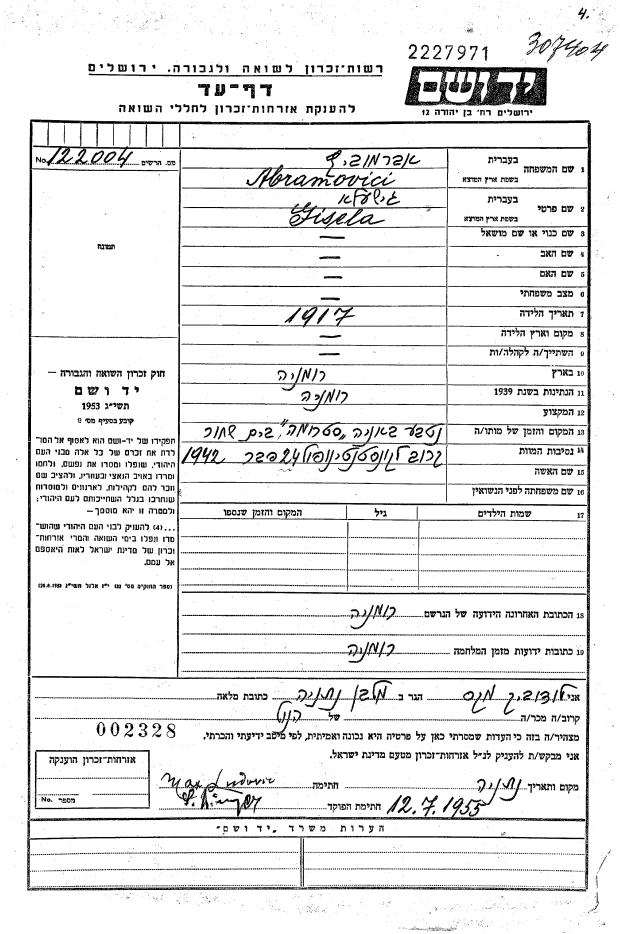 4.
2227971 307404
רשות-זכרון לשואה ולגבורה, ירושלים
דף-עד
להענקת אזרחות-זכרון לחללי השואה
יד ושם
ירושלים רח' בן יהודה 12
מס. הרשים No. 122004
תמונה
חוק זכרון השואה והגבורה —
יד ושם
תשי"ג 1953
קובע בסעיף מס' 2
תפקידו של יד-ושם הוא לאסוף אל המו־
לדת את זכרם של כל אלה מבני העם
היהודי, שנפלו ומסרו את נפשם, נלחמו
ומרדו באויב הנאצי ובעוזריו, ולהציב שם
וזכר להם לקהילות, לארגונים ולמוסדות
שנחרבו בגלל השתייכותם לעם היהודי;
ולמטרה זו יהא מוסמך —
...(4) להעניק לבני העם היהודי שהוש־
מדו ונפלו בימי השואה והמרי אזרחות־
זכרון של מדינת ישראל לאות היאספם
אל עמם.
1 שם המשפחה בעברית אברמוביץ
בשפת ארץ המוצא Abramovici
2 שם פרטי בעברית גיזעלא
בשפת ארץ המוצא Gisela
3 שם כנוי או שם מושאל —
4 שם האב —
5 שם האם —
6 מצב משפחתי —
7 תאריך הלידה 1917
8 מקום וארץ הלידה —
9 השתייך/ה לקהלה/ות —
10 בארץ רומניה
11 הנתינות בשנת 1939 רומניה
12 המקצוע
13 המקום והזמן של מותו/ה נטבע באוניה "סטרומה", בים שחור
14 נסיבות המוות קרוב לקונסטנטינופול 24 פבר 1942
15 שם האשה
16 שם משפחתה לפני הנשואין
17 שמות הילדים גיל המקום והזמן שנספו
18 הכתובת האחרונה הידועה של הנרשם רומניה
19 כתובות ידועות מזמן המלחמה רומניה
אני לודוביק מקס הגר ב מלבן נתניה כתובת מלאה
קרוב/ה מכר/ה של הנ"ל
מצהיר/ה בזה כי העדות שמסרתי כאן על פרטיה היא נכונה ואמיתית, לפי מיטב ידיעתי והכרתי.
אני מבקש/ת להעניק לנ"ל אזרחות-זכרון מטעם מדינת ישראל.
002328
אזרחות-זכרון הוענקה
מספר No.
מקום ותאריך נתניה חתימה Max Ludovic
12.7.1955 חתימת הפוקד
הערות משרד "יד ושם"